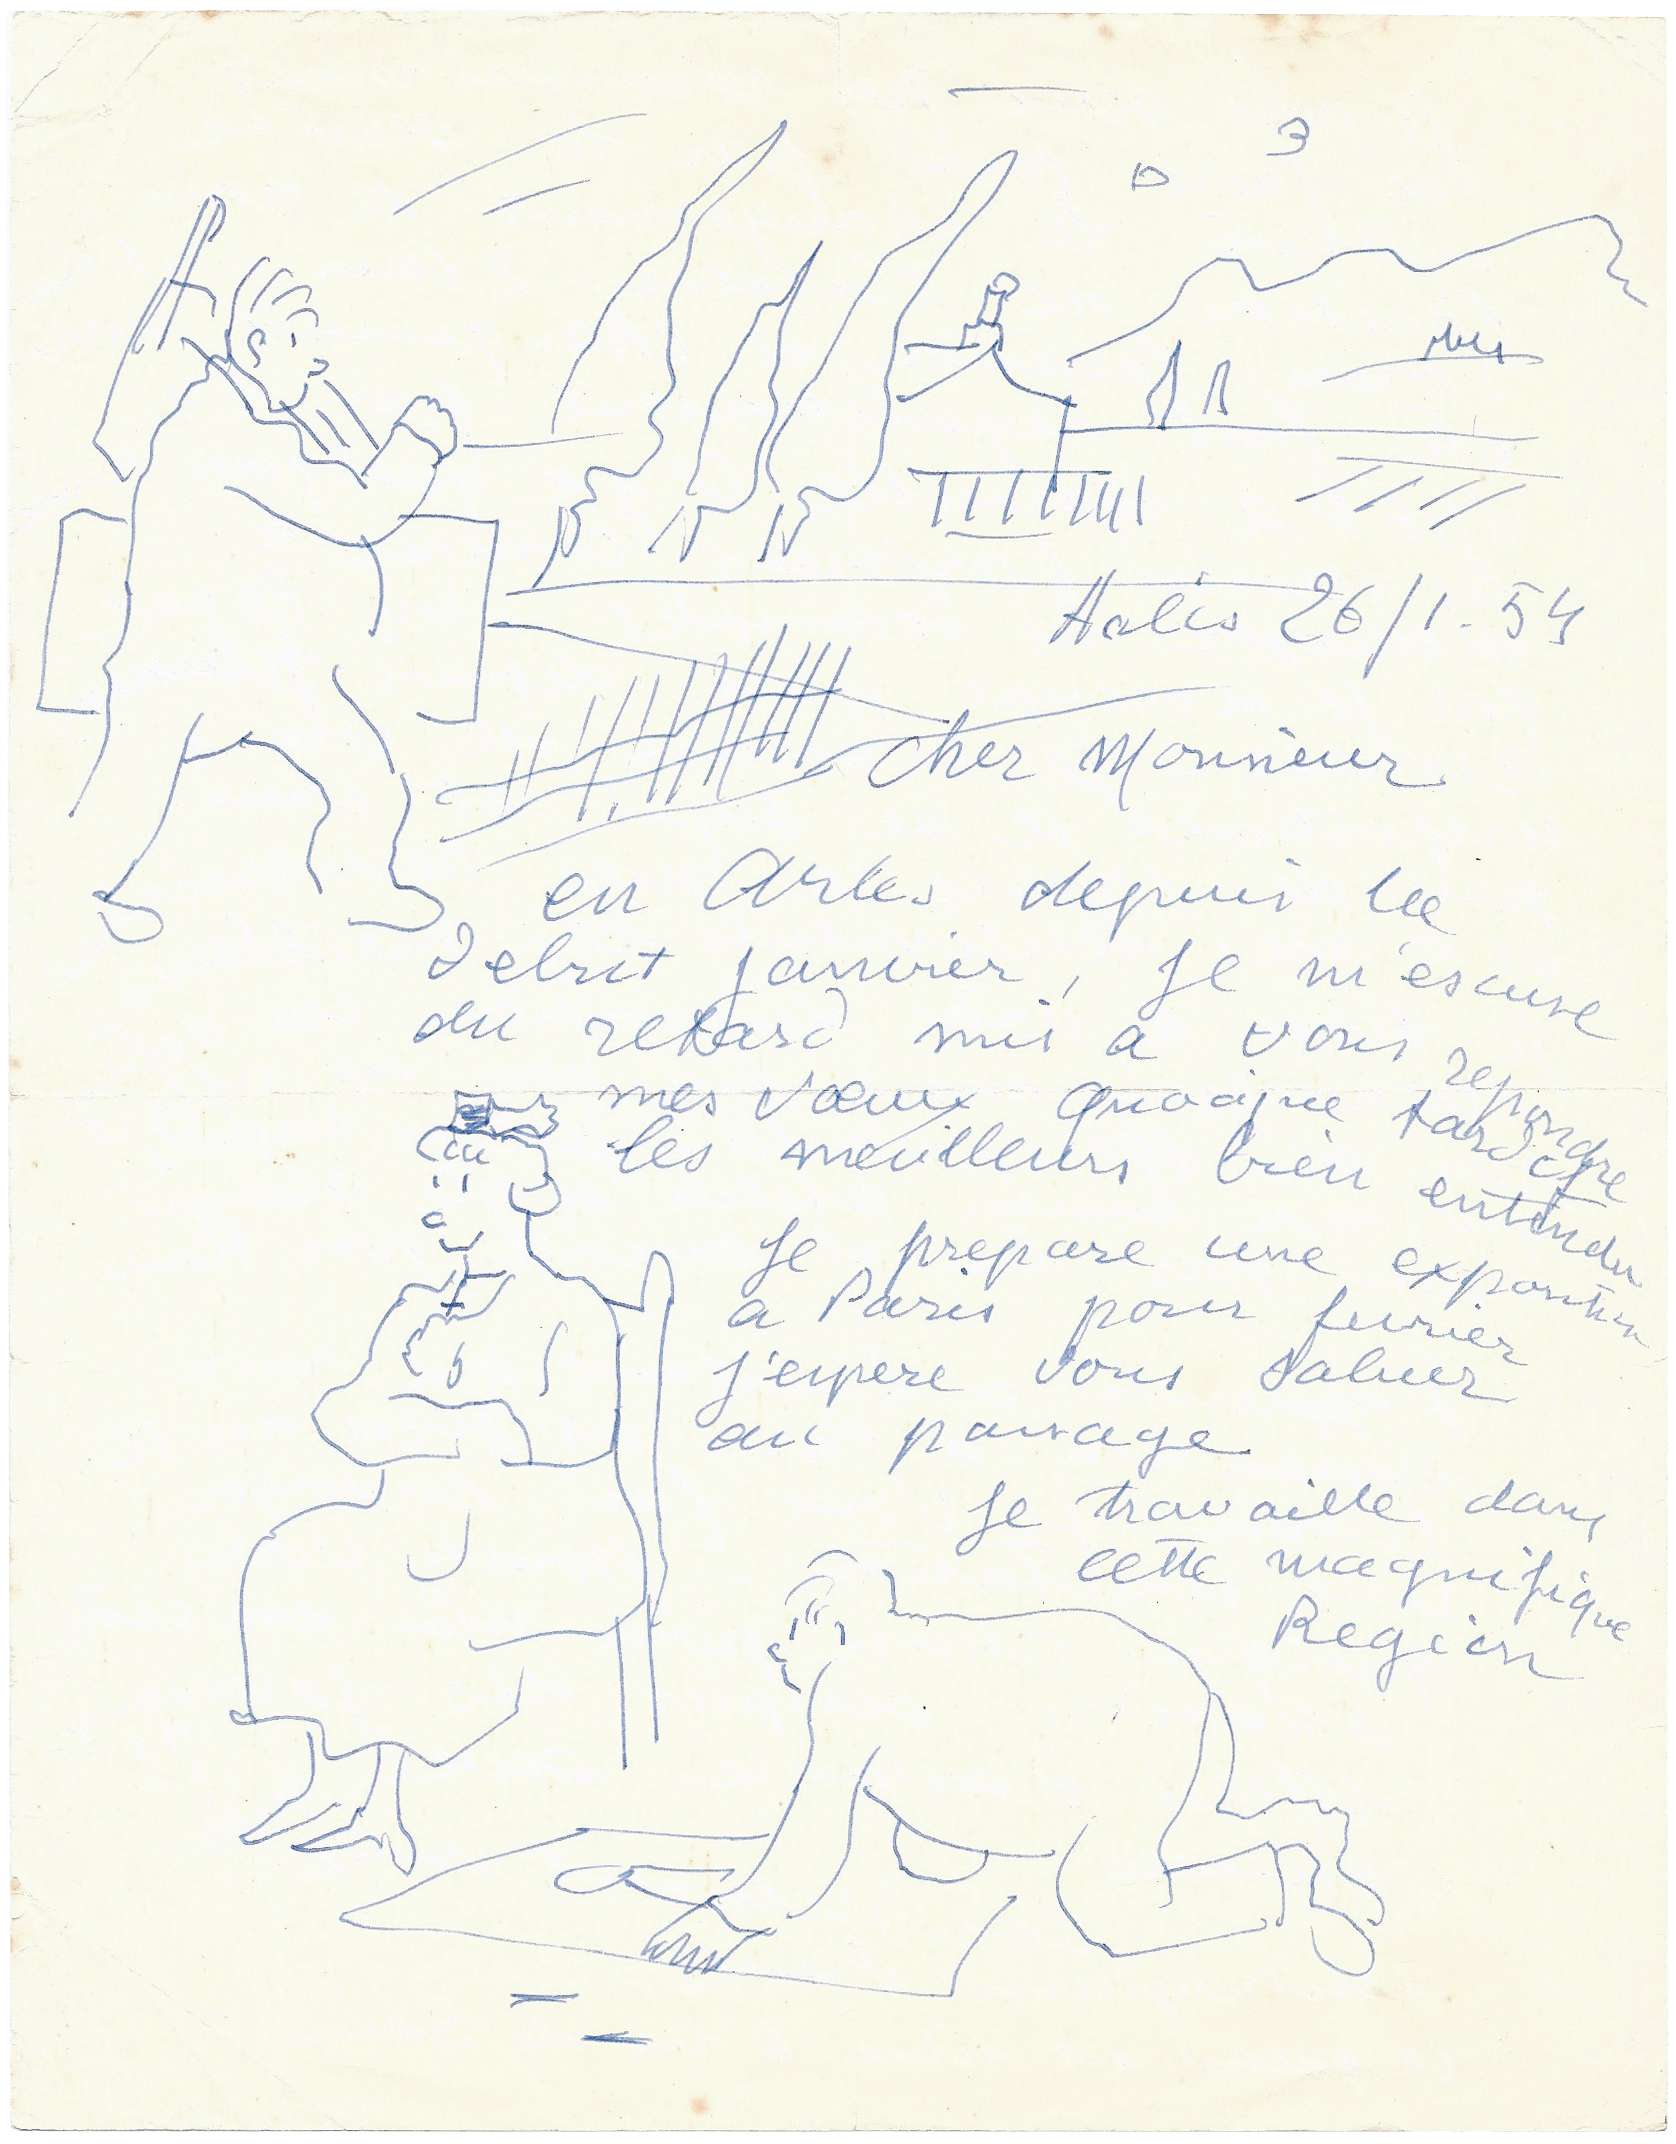 26/1.54
Cher Monsieur
en Arles depuis le
debut janvier, je m'escuse
du retard mis a vous repondre
mes vœux quoique tard
les meilleurs bien entendu
je prepare une exposition
a Paris pour fevrier
j'espere vous saluer
au passage
je travaille dans
cette magnifique
Region